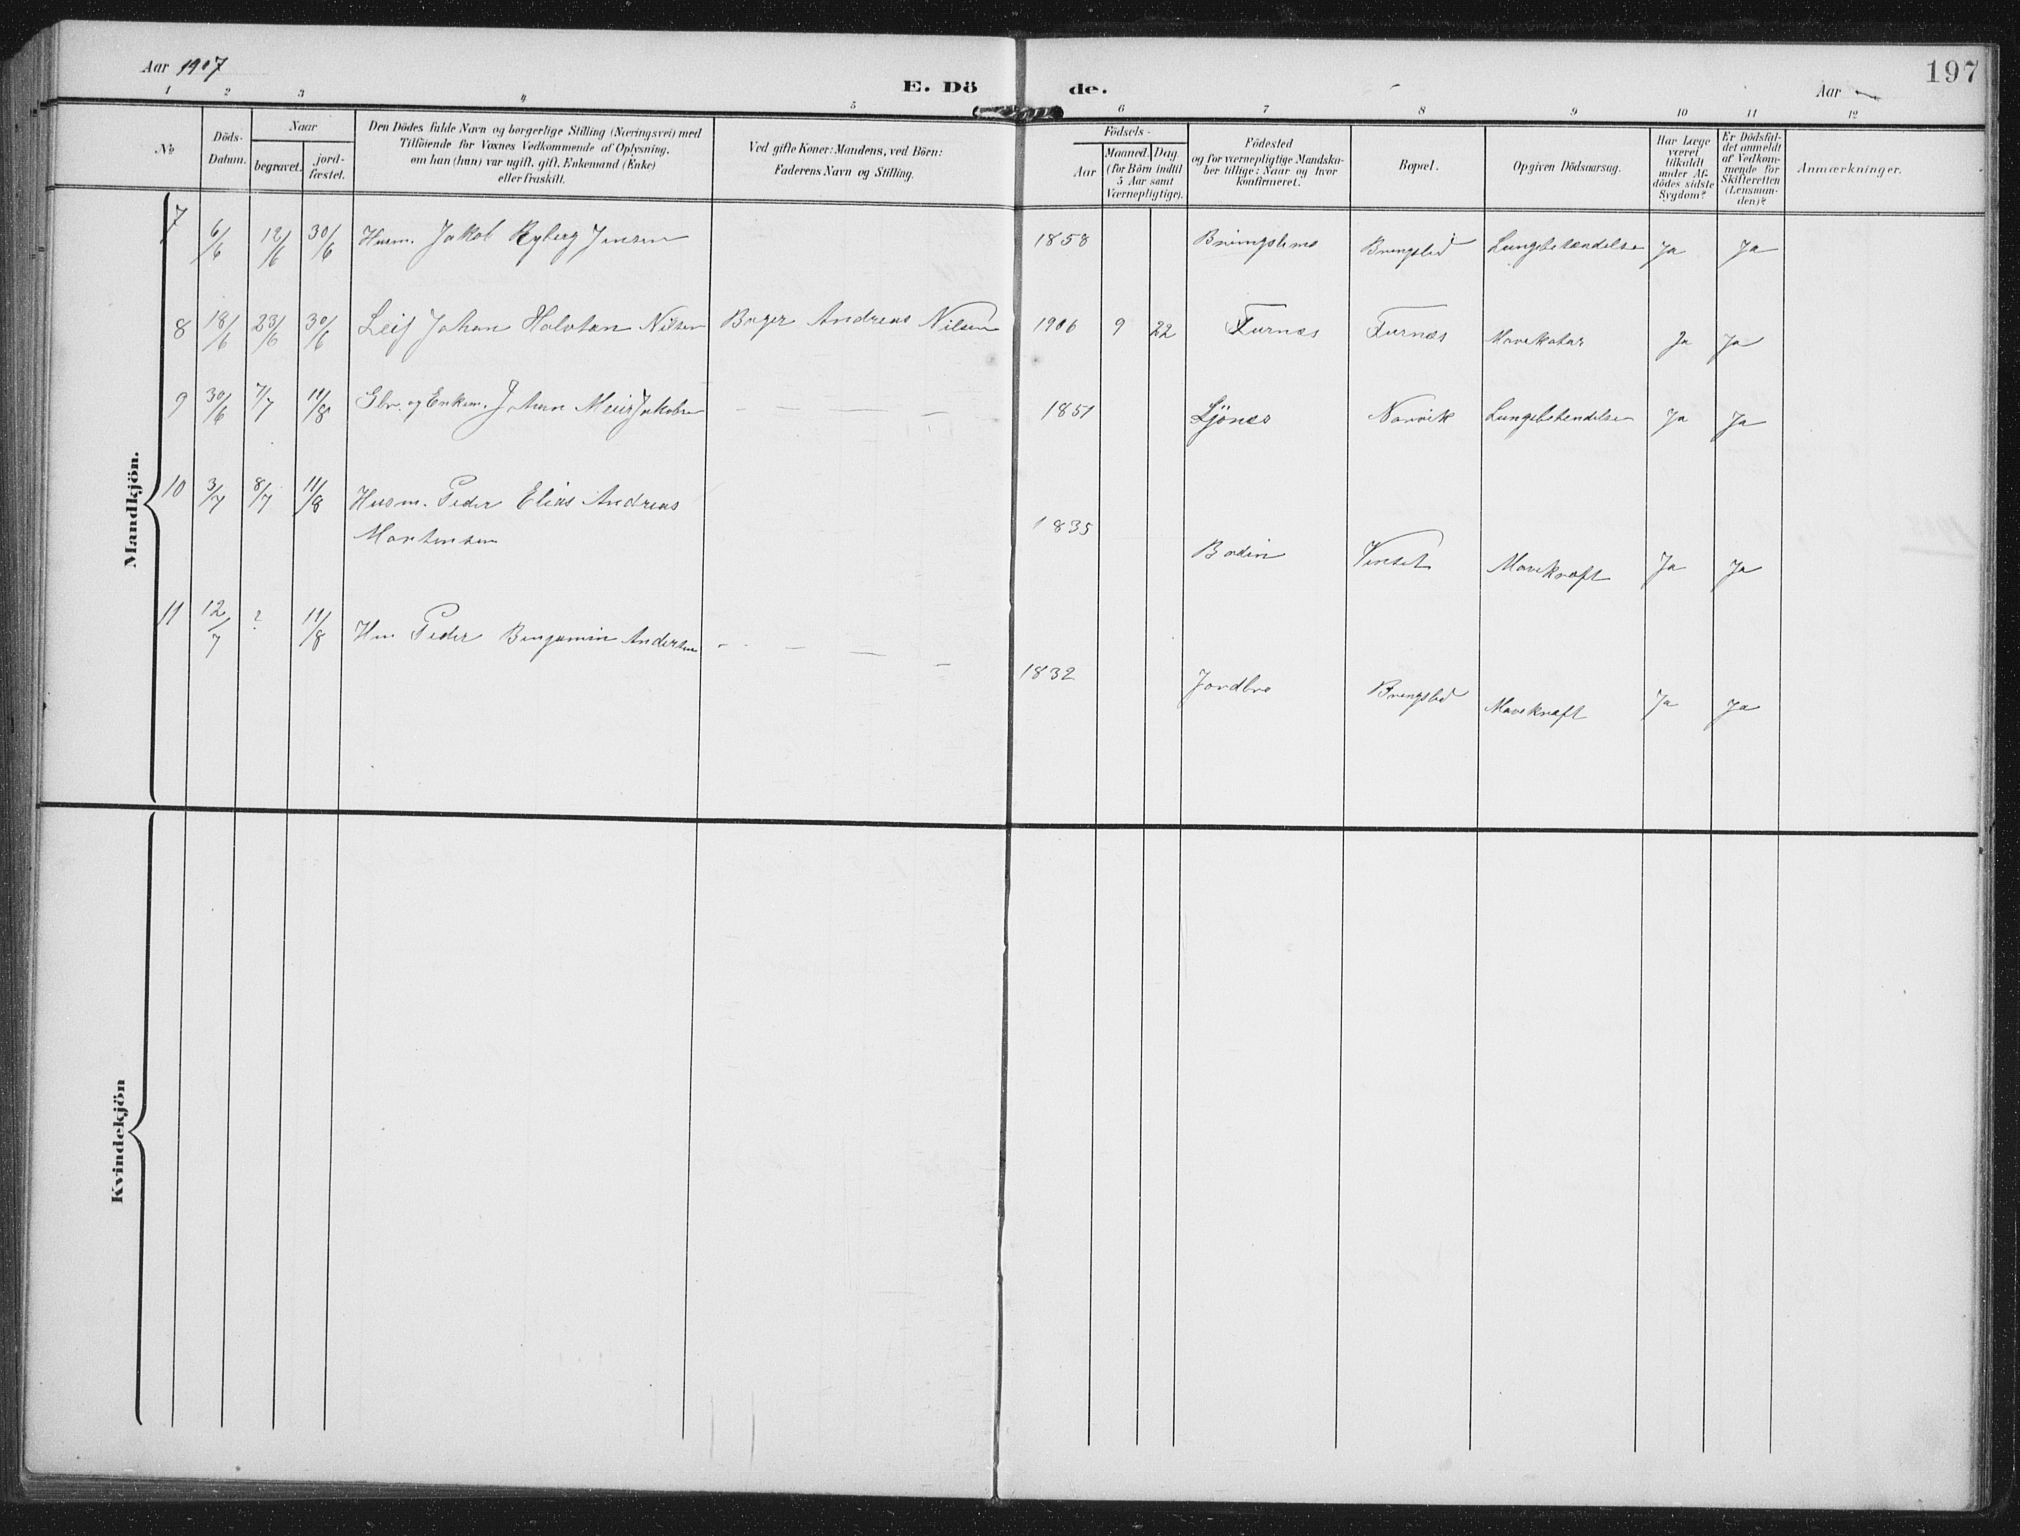 Aar 1907
E. Dö de.
Aar
197
1 2 3 4 5 6 7 8 9 10 11 12
No
Döds-
Datum.
Naar
begravet.
jord-
fæstet.
Den Dödes fulde Navn og borgerlige Stilling (Næringsvei) med
Tilföiende for Voxnes Vedkommende af Oplysning,
om han (hun) var ugift, gift, Enkemand (Enke)
eller fraskilt.
Ved gifte Koner: Mandens, ved Börn:
Faderens Navn og Stilling.
Födsels-
Aar
Maaned. Dag.
(for Börn indtil
5 Aar samt
Værnepligtige).
Födested
og for værnepligtige Mandska-
ber tillige: Naar og hvor
konfirmeret.
Bopæl.
Opgiven Dödsaarsag.
Har Læge
været
tilkaldt
under Af-
dödes sidste
Sygdom?
Er Dödsfal-
det anmeldt
af Vedkom-
mende for
Skifteretten
(Lensman-
den)?
Anmærkninger.
Mandkjön.
7 6/6 12/6 30/6 Husm. Jakob Ryberg Jensen 1858 Bringslid Lungebetændelse Ja Ja
8 18/6 23/6 30/6 Leif Johan Halvtan Nilsen Birger Andreas Nilsen 1906 9 22 Furnes Furnes Mavekatar Ja Ja
9 30/6 7/7 11/8 Gbr. og Enkem. Johan Meier Jakobsen — — — — 1851 Ljönes Narvik Lungebetendelse Ja Ja
10 3/7 8/7 11/8 Husm. Peder Elias Andreas
Mortensen 1835 Bodin Venset Mavekræft Ja Ja
11 12/7 ? 11/8 Hm Peder Benjamin Andersen — — — — 1832 Jordbro Bringslid Mavekræft Ja Ja
Kvindekjön